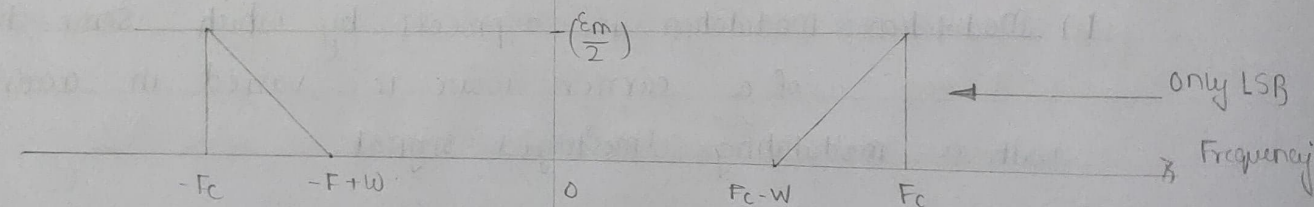 (Em/2)
only LSB
Frequency
-Fc -F+W 0 Fc-W Fc